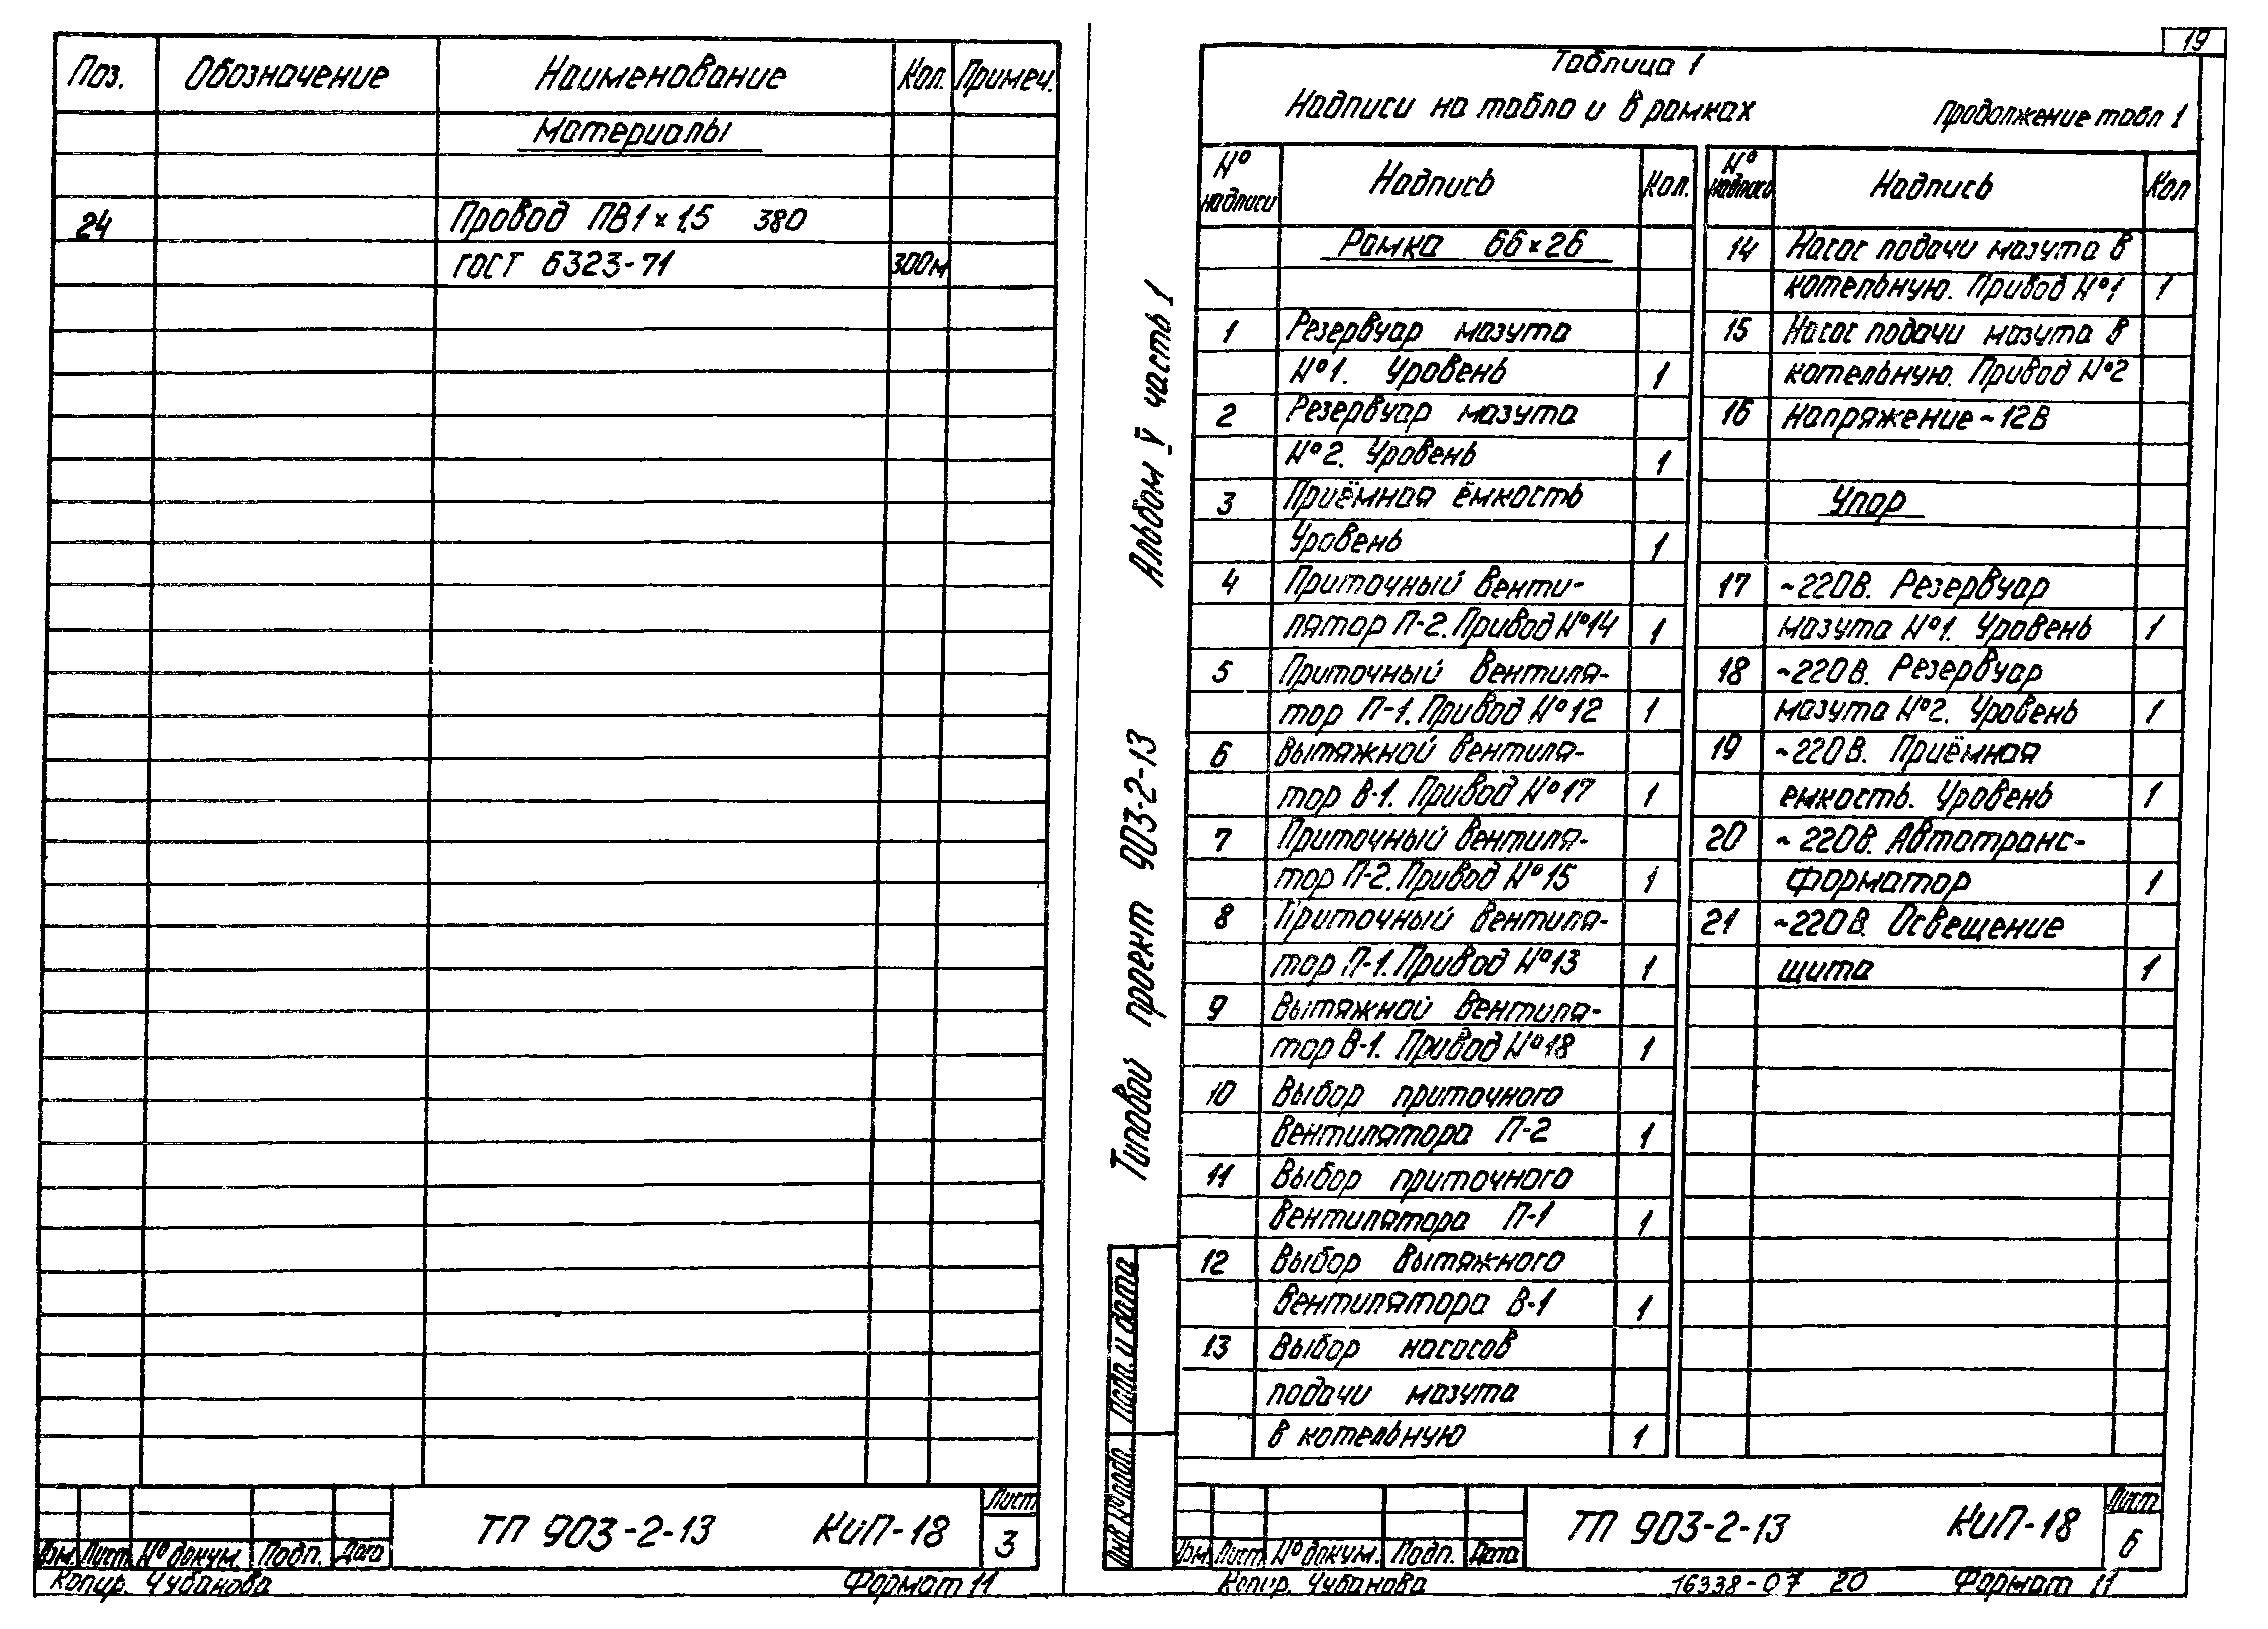 Поз. Обозначение Наименование Кол. Примеч.
Материалы
24 Провод ПВ1×1,5 380
ГОСТ 6323-71 300м
ТП 903-2-13 КиП-18
Лист
3
Изм. Лист № докум. Подп. Дата
Копир. Чубанова Формат 11
Альбом V часть 1
Типовой проект 903-2-13
Подп. и дата
Инв № подл.
19
Таблица 1
Надписи на табло и в рамках
Продолжение табл 1
№ надписи Надпись Кол.
Рамка 66×26
1 Резервуар мазута
№1. Уровень 1
2 Резервуар мазута
№2. Уровень 1
3 Приёмная ёмкость
Уровень 1
4 Приточный венти-
лятор П-2. Привод №14 1
5 Приточный вентиля-
тор П-1. Привод №12 1
6 Вытяжной вентиля-
тор В-1. Привод №17 1
7 Приточный вентиля-
тор П-2. Привод №15 1
8 Приточный вентиля-
тор П-1. Привод №13 1
9 Вытяжной вентиля-
тор В-1. Привод №18 1
10 Выбор приточного
вентилятора П-2 1
11 Выбор приточного
вентилятора П-1 1
12 Выбор вытяжного
вентилятора В-1 1
13 Выбор насосов
подачи мазута
в котельную 1
№ надписи Надпись Кол
14 Насос подачи мазута в
котельную. Привод №1 1
15 Насос подачи мазута в
котельную. Привод №2
16 Напряжение ~12В
Упор
17 ~220В. Резервуар
мазута №1. Уровень 1
18 ~220В. Резервуар
мазута №2. Уровень 1
19 ~220В. Приёмная
емкость. Уровень 1
20 ~220В. Автотранс-
форматор 1
21 ~220В. Освещение
щита 1
ТП 903-2-13 КиП-18
Лист
6
Изм. Лист № докум. Подп. Дата
Копир. Чубанова 16338-07 20 Формат 11